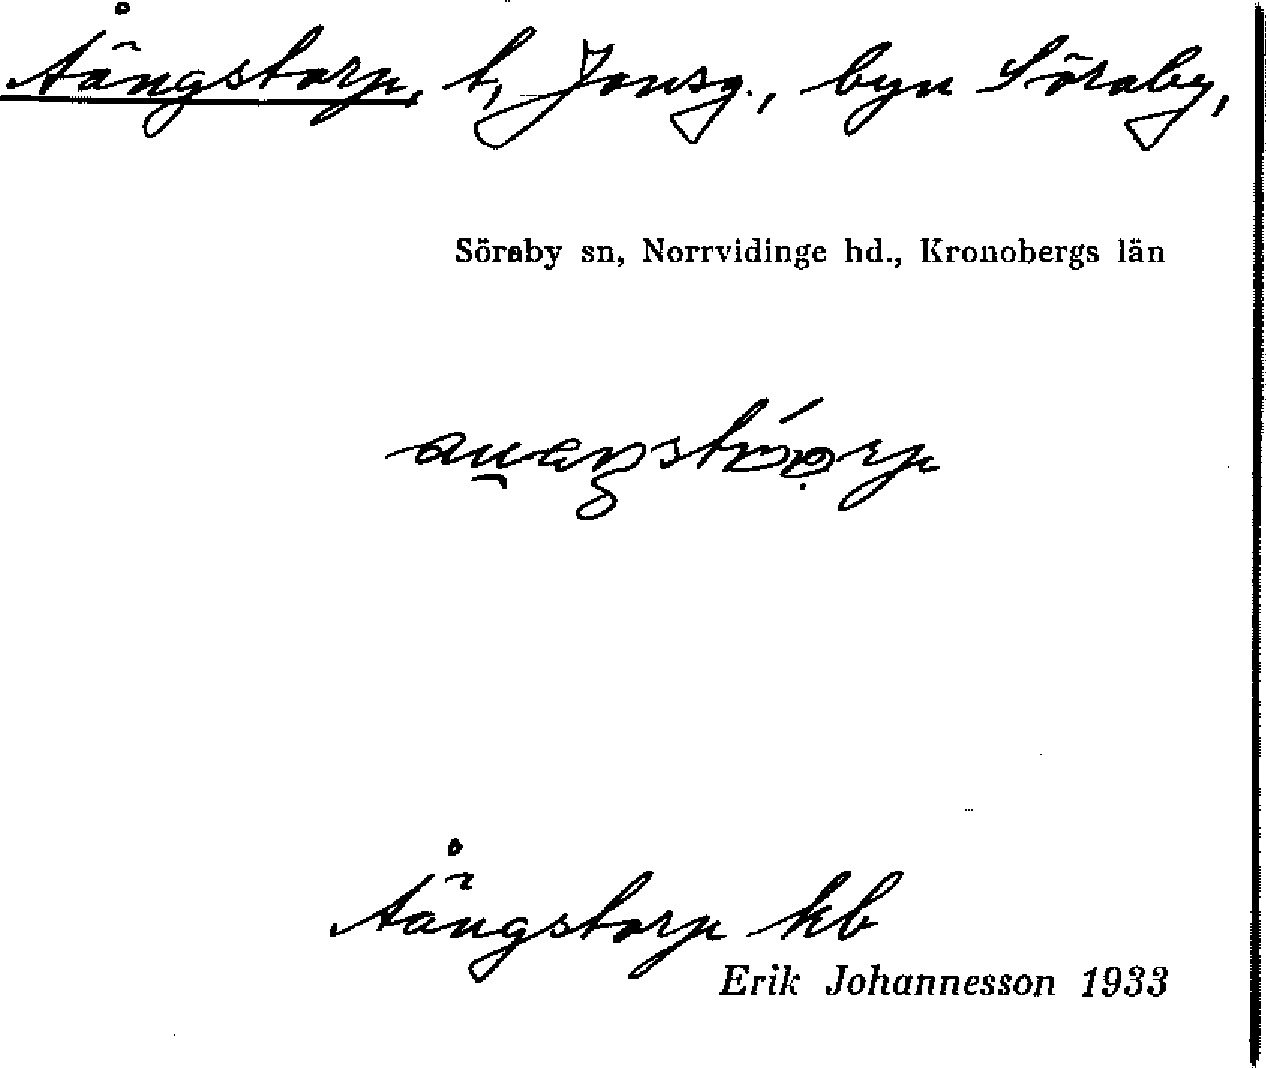 Åängstorp, t, Jonsg., byn Söraby,
Söraby sn, Norrvidinge hd., Kronobergs län
Åängstorp kb
Erik Johannesson 1933